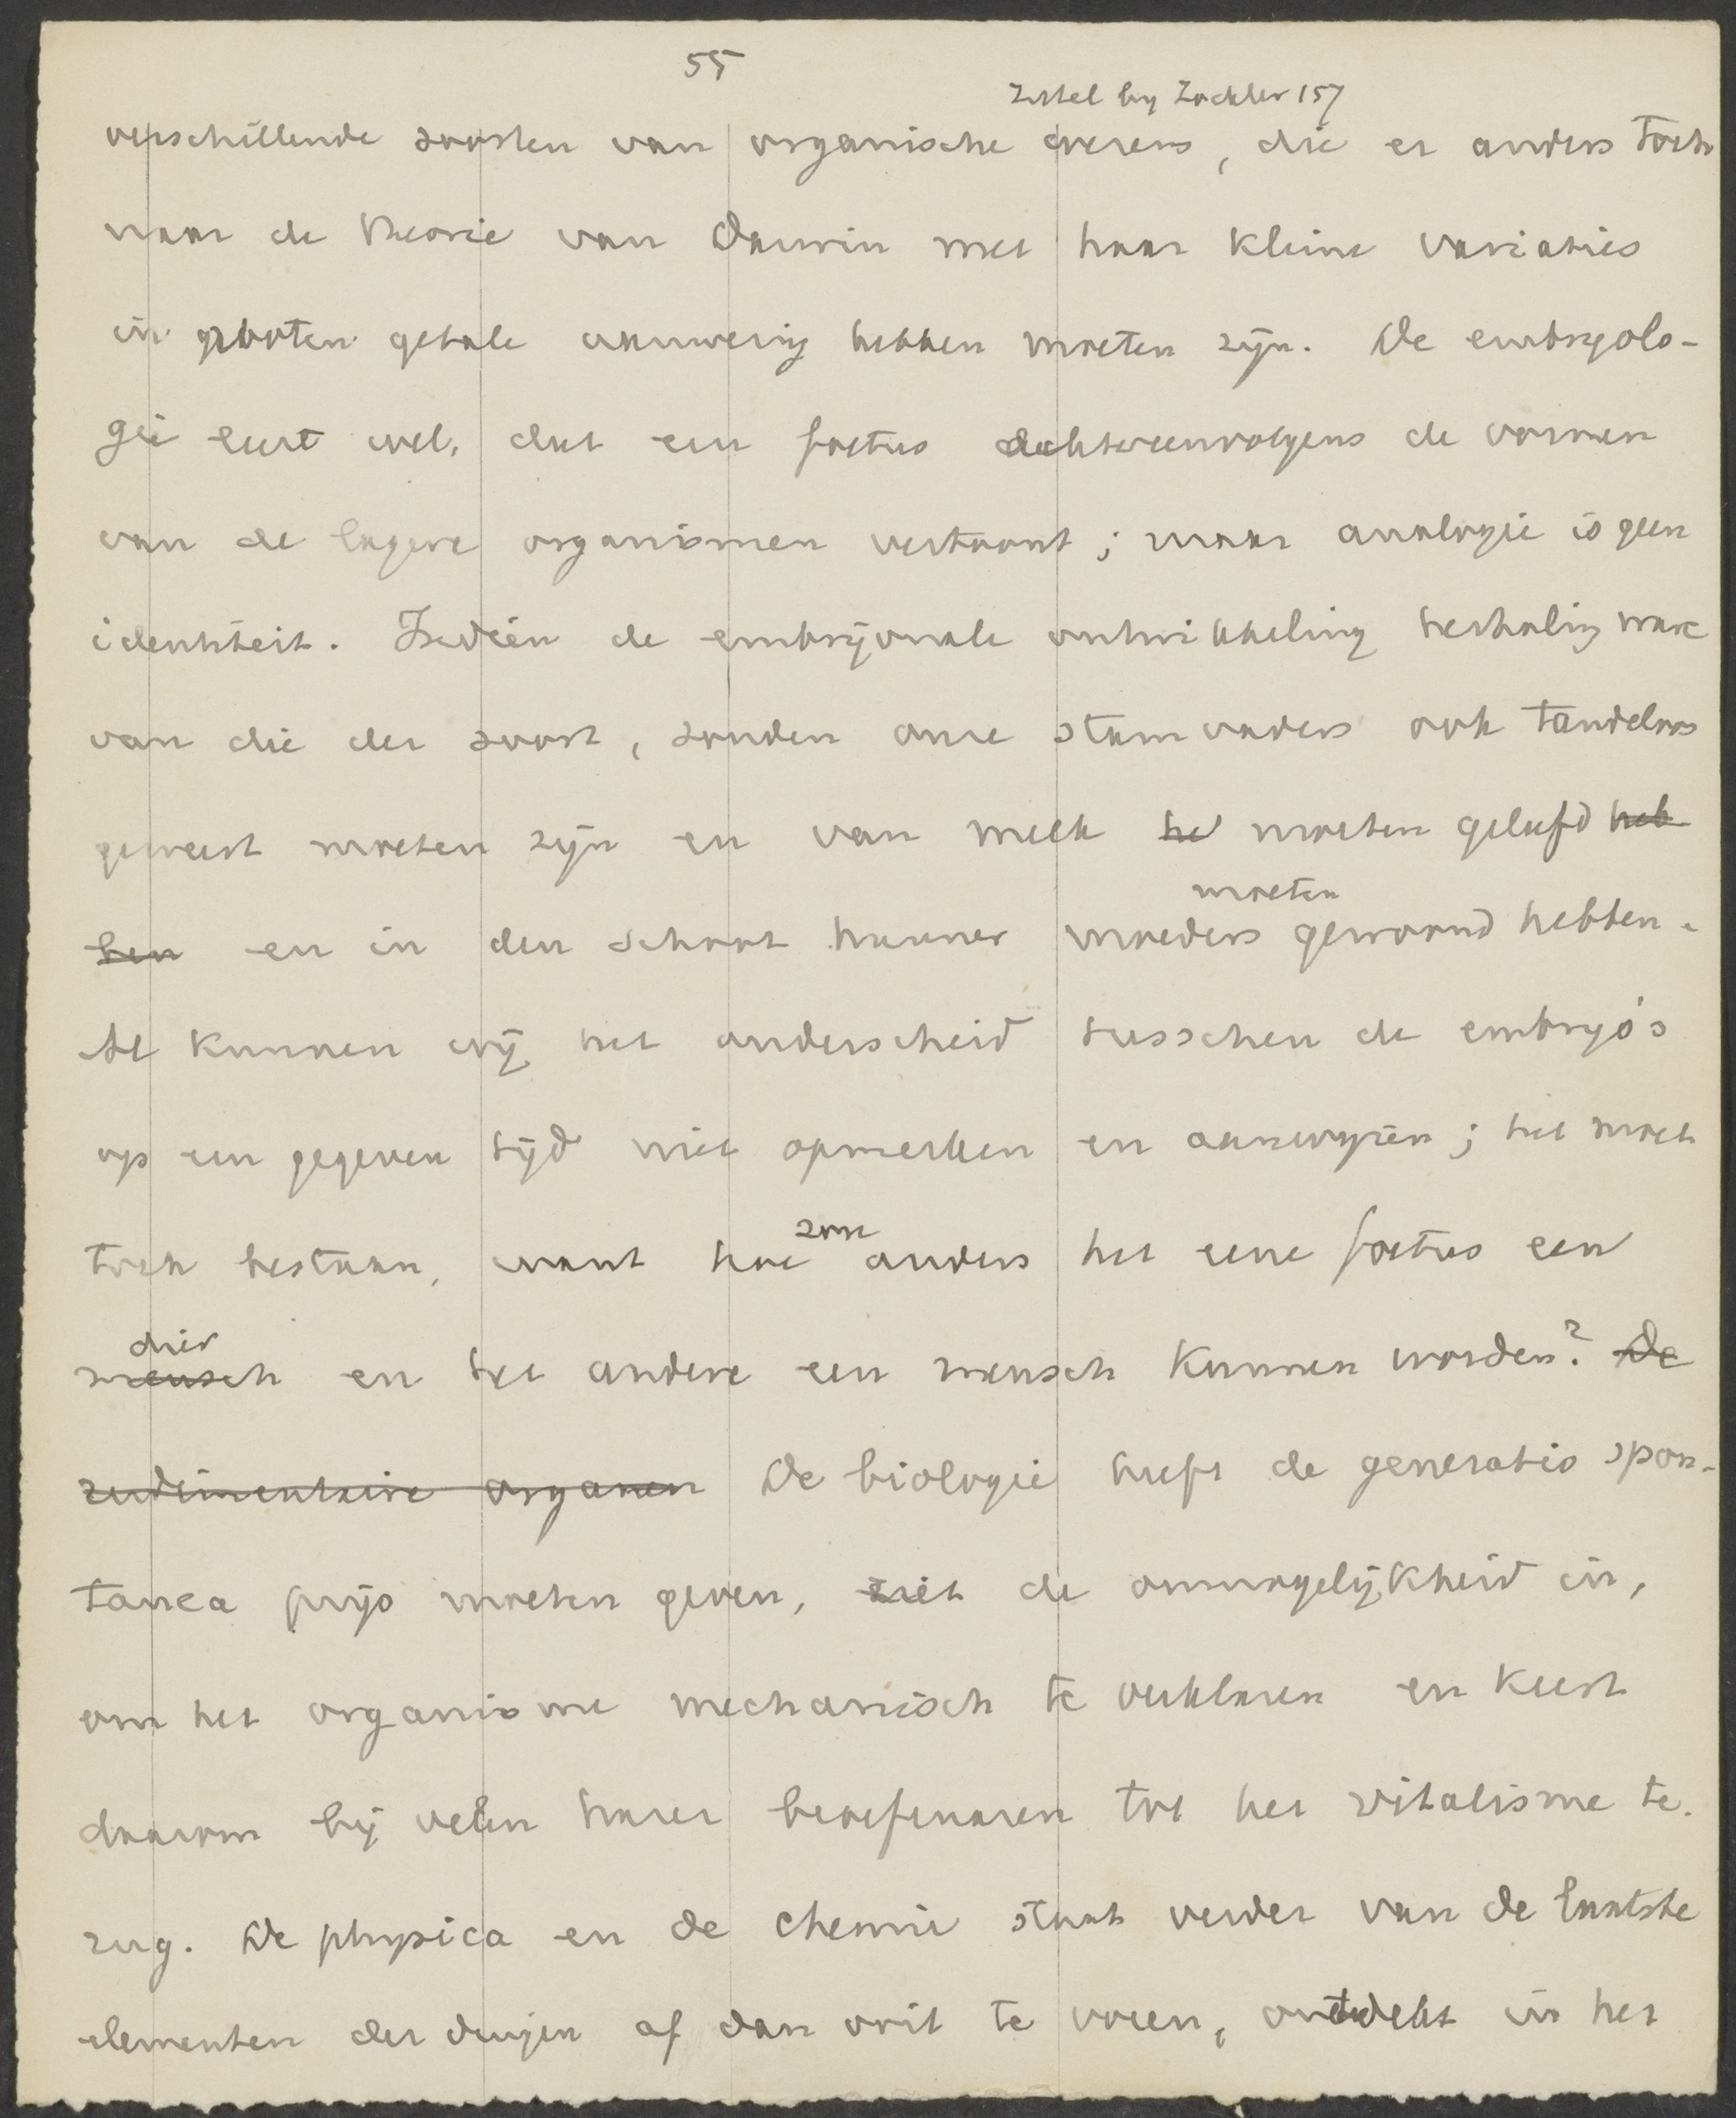 55
Zittel bij Zöckler 157
verschillende soorten van organische wezens, die er anders toch
naar de theorie van Darwin met haar kleine variaties
in grooten getale aanwezig hebben moeten zijn. De embryolo-
gie leert wel, dat een foetus achtereenvolgens de vormen
van de lagere organismen vertoont; maar analogie is geen
identiteit. Indien de embryonale ontwikkeling herhaling ware
van die der soort, zouden onze stamvaders ook tandeloos
geweest moeten zijn en van melk he moeten geleefd heb
ben en in den schoot hunner moeders moeten gewoond hebben.
Al kunnen wij het onderscheid tusschen de embryo's
op een gegeven tijd niet opmerken en aanwijzen; het moet
toch bestaan, want hoe zou anders het eene foetus een
mensch dier en het andere een mensch kunnen worden? De
rudimentaire organen De biologie heeft de generatio spon-
tanea prijs moeten geven, ziet de onmogelijkheid in,
om het organisme mechanisch te verklaren en keert
daarom bij velen harer beoefenaren tot het vitalisme te-
rug. De physica en de chemie staat verder van de laatste
elementen der dingen af dan ooit te voren, ontdekt in het